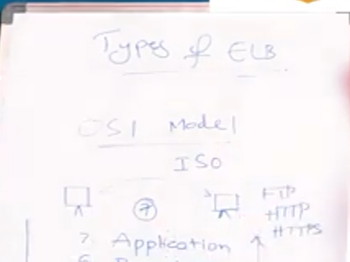 Types of ELB
OSI Model
ISO
7
FTP
HTTP
HTTPS
7. Application